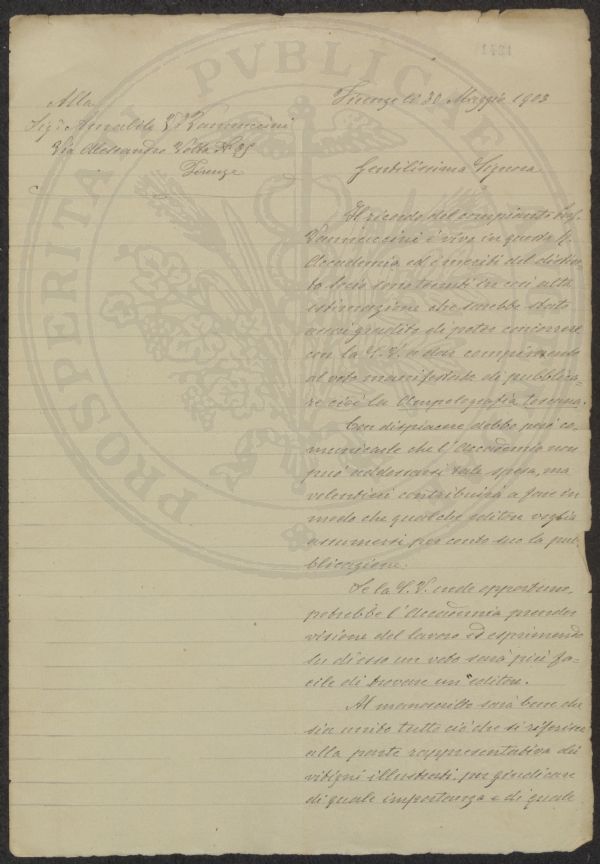 1241
Alla
Sigra Annabile Vva Vannuccini
Via Alessandro Volta N. 25
Firenze
Firenze li 30 Maggio 1903
Gentilissima Signora
Il ricordo del compianto
Vannuccini è vivo in questa R.
Accademia ed i meriti del distin-
to Socio sono tenuti in così alta
estimazione che sarebbe stato
assai gradito di poter concorrere
con la S. V. a dar compimento
al voto manifestato di pubblica-
re cioè la Ampelografia toscana.
Con dispiacere debbo però co-
municarle che l'Accademia non
può addossarsi tale spesa, ma
volentieri contribuirà a fare in
modo che qualche editore voglia
assumersi per conto suo la pub-
blicazione.
Se la S. V. crede opportuno,
potrebbe l'Accademia prender
visione del lavoro ed esprimendo
su di esso un voto sarà più fa-
cile di trovare un editore.
Al manoscritto sarà bene che
sia unito tutto ciò che si riferisce
alla parte rappresentativa dei
vitigni illustrati per giudicare
di quale importanza e di quale
PROSPERITATI PVBLICAE